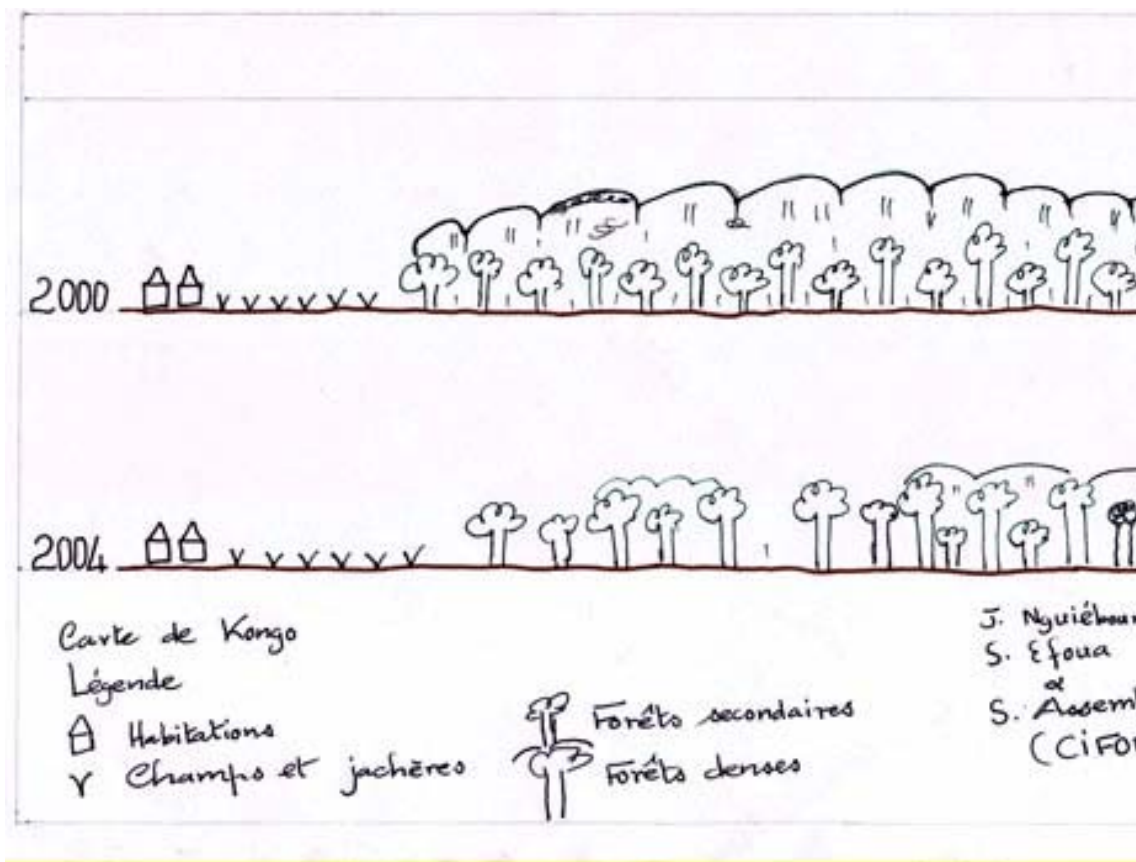 2000
2004
Carte de Kongo
Légende
Habitations
Champs et jachères
Forêts secondaires
Forêts denses
J. Nguiébour
S. Efoua
&
S. Assem
(CiFO